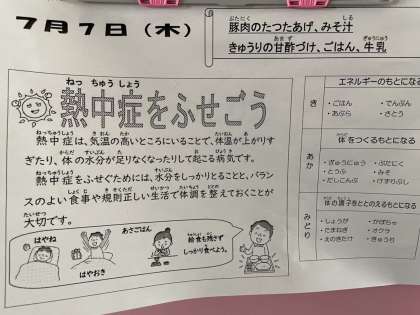 7月7日（木）
豚肉のたつたあげ、みそ汁
きゅうりの甘酢づけ、ごはん、牛乳
熱中症をふせごう
熱中症は、気温の高いところにいることで、体温が上がりす
ぎたり、体の水分が足りなくなったりして起こる病気です。
熱中症をふせぐためには、水分をしっかりとることと、バラン
スのよい食事や規則正しい生活で体調を整えておくことが
大切です。
はやね
はやおき
あさごはん
給食も残さず
しっかり食べよう。
エネルギーのもとになる
き
・ごはん
・でんぷん
・あぶら
・さとう
体をつくるもとになる
あか
・ぎゅうにゅう
・ぶたにく
・とうふ
・みそ
・だしこんぶ
・けずりぶし
体の調子をととのえるもとになる
みどり
・しょうが
・かぼちゃ
・たまねぎ
・オクラ
・えのきたけ
・きゅうり